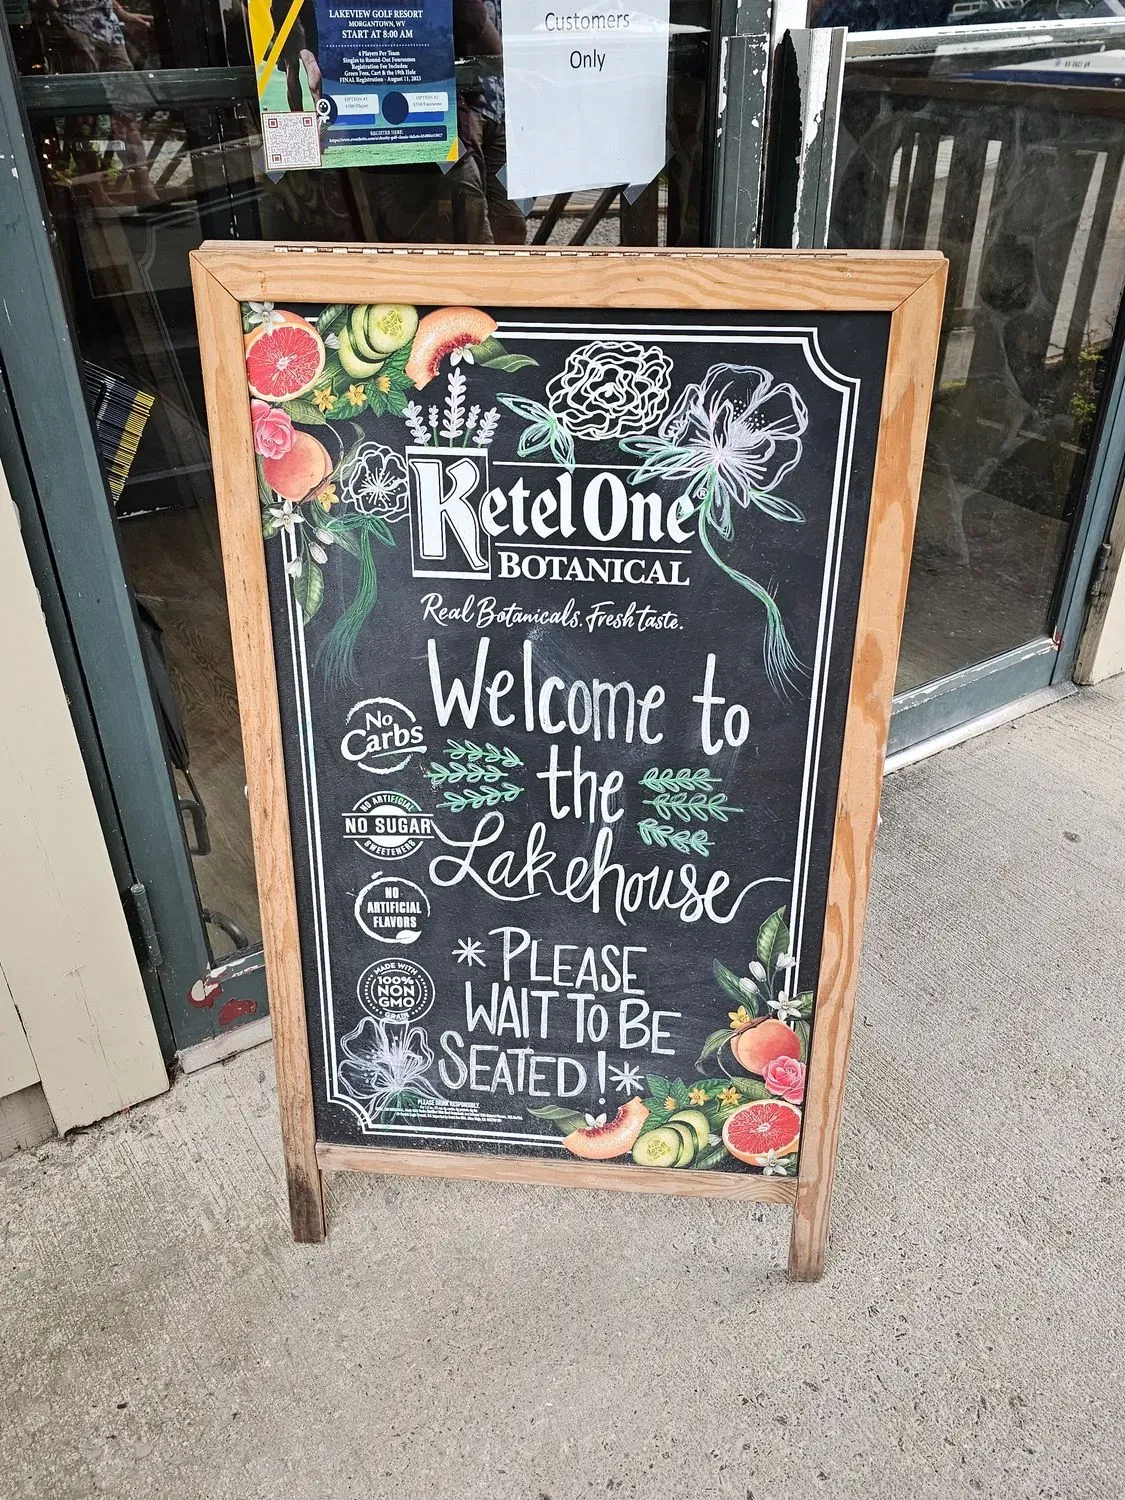 LAKEVIEW GOLF RESORT
MORGANTOWN, WV
START AT 8:00 AM
4 Players Per Team
Singles to Round-Out Foursomes
Registration Fee Includes:
Green Fees, Cart & the 19th Hole
FINAL Registration - August 11, 2023
OPTION #1
OPTION #2
REGISTER HERE:
Customers
Only
Ketel One®
BOTANICAL
Real Botanicals. Fresh taste.
Welcome to
the
Lakehouse
No
Carbs
NO ARTIFICIAL
NO SUGAR
SWEETENERS
NO
ARTIFICIAL
FLAVORS
MADE WITH
100%
NON
GMO
GRAIN
*PLEASE
WAIT TO BE
SEATED!*
PLEASE DRINK RESPONSIBLY.